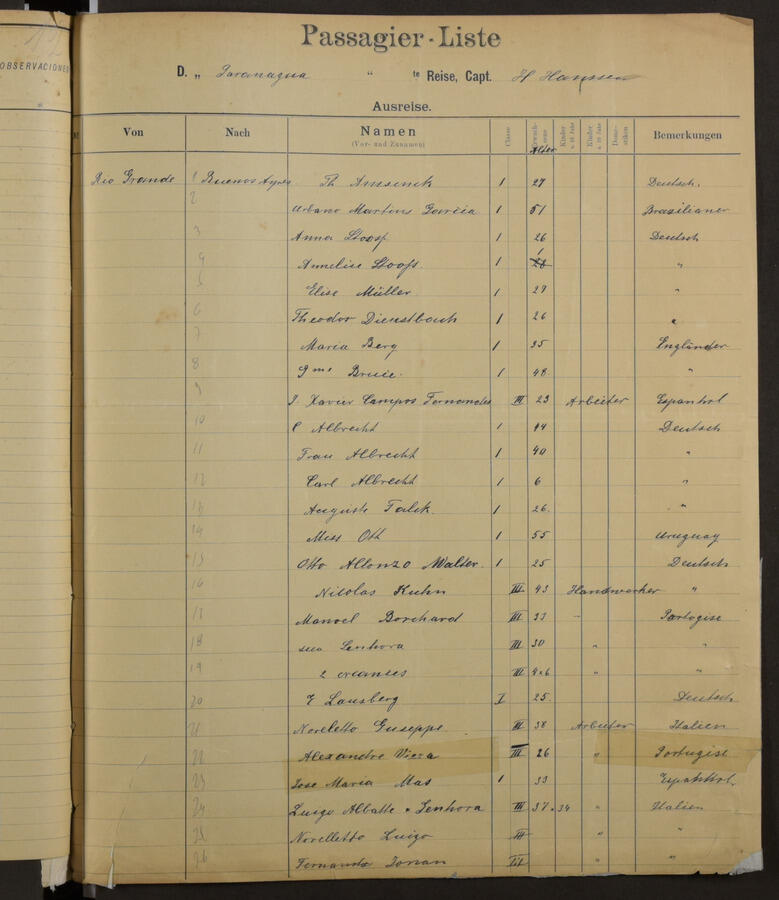 OBSERVACIONES
Passagier-Liste
D. „ Paranagua " te Reise, Capt. H Hanssen
Ausreise.
Von Nach Namen (Vor- und Zunamen) Classe Erwachsene Kinder Kinder Domestiken Bemerkungen
Alter
Rio Grande 1 Buenos Ayres Th Amsinck I 27 Deutsch.
2 Urbano Martins Garcia I 51 Brasilianer
3 Anna Stoofs I 26 Deutsch
4 Annelise Stoofs. I 1 "
5 Elise Müller I 27 "
6 Theodor Dienstbach I 26 "
7 Maria Berg I 35 Engländer
8 Bruce. I 48 "
9 J. Xavier Campos Fernandes III 23 Arbeiter Espanhol
10 C Albrecht I 44 Deutsch
11 Frau Albrecht I 40 "
12 Carl Albrecht I 6 "
13 Auguste Falck. I 26. "
14 Miss Ott I 55 Uruguay
15 Otto Allonzo Walter. I 25 Deutsch
16 Nicolas Kuhn III 43 Handwerker "
17 Manoel Borchard III 33 – Portogise
18 sua Senhora III 30 " "
19 2 creances III 4 & 6 " "
20 E Lausberg I 25. Deutsch
21 Novelletto Guseppe III 38 Arbeiter Italien
22 Alexandre Viera III 26 " Portugise
23 Jose Maria Mas I 33 Espanhol.
24 Luigo Albatte & Senhora III 37 & 34 " Italien
25 Novelletto Luigo III " "
26 Fernando III " "